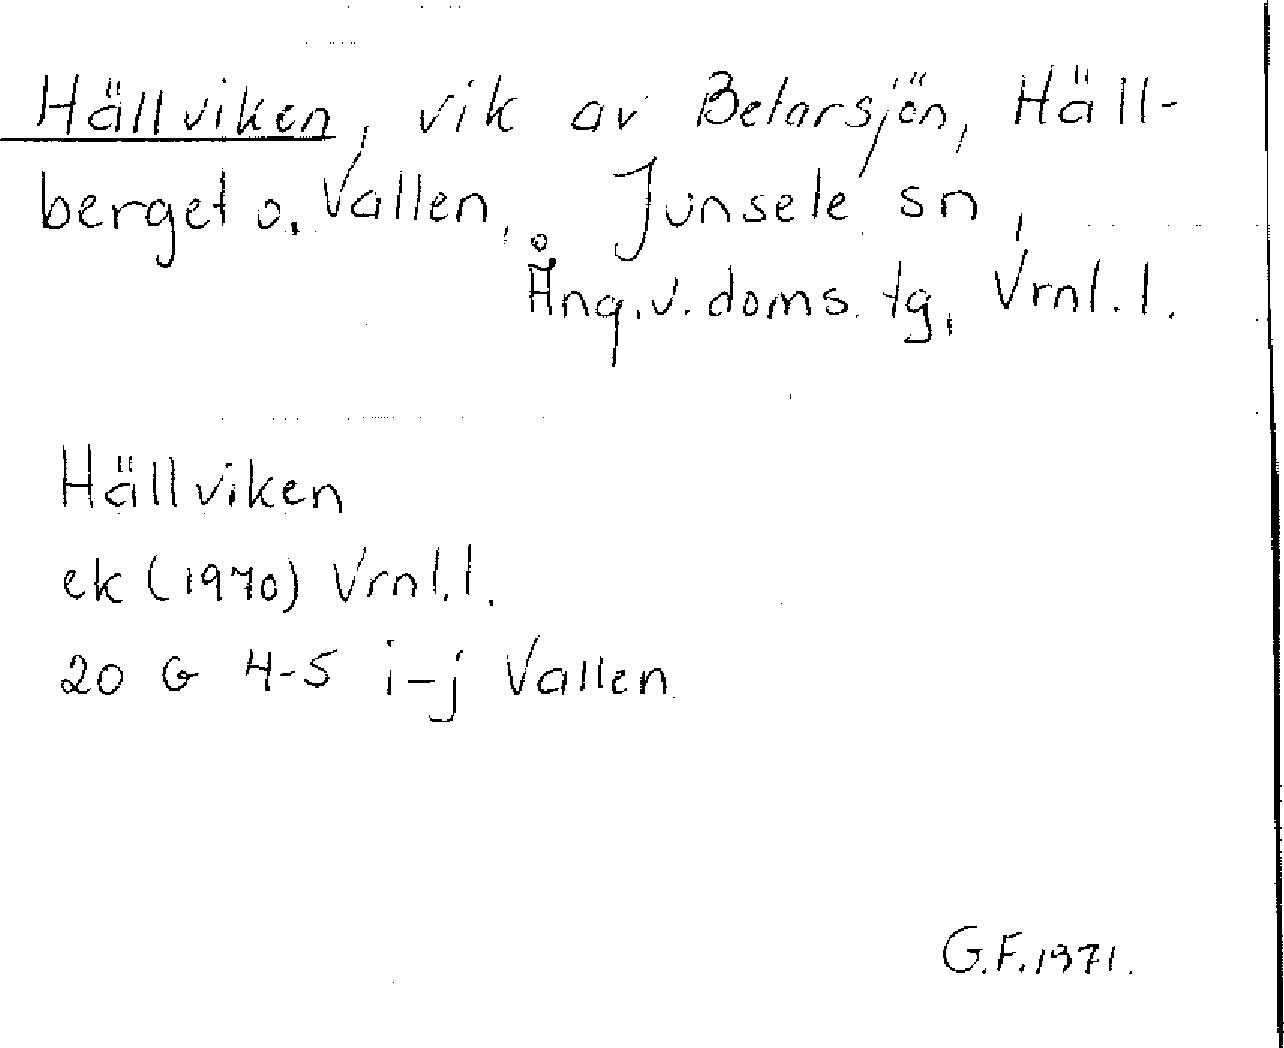 Hällviken, vik av Betarsjön, Häll-
berget o. Vallen, Junsele sn,
Ång.v.doms. tg, Vrnl.l.
Hällviken
ek (1970) Vrnl.l.
20 G 4-5 i-j Vallen
G.F.1971.